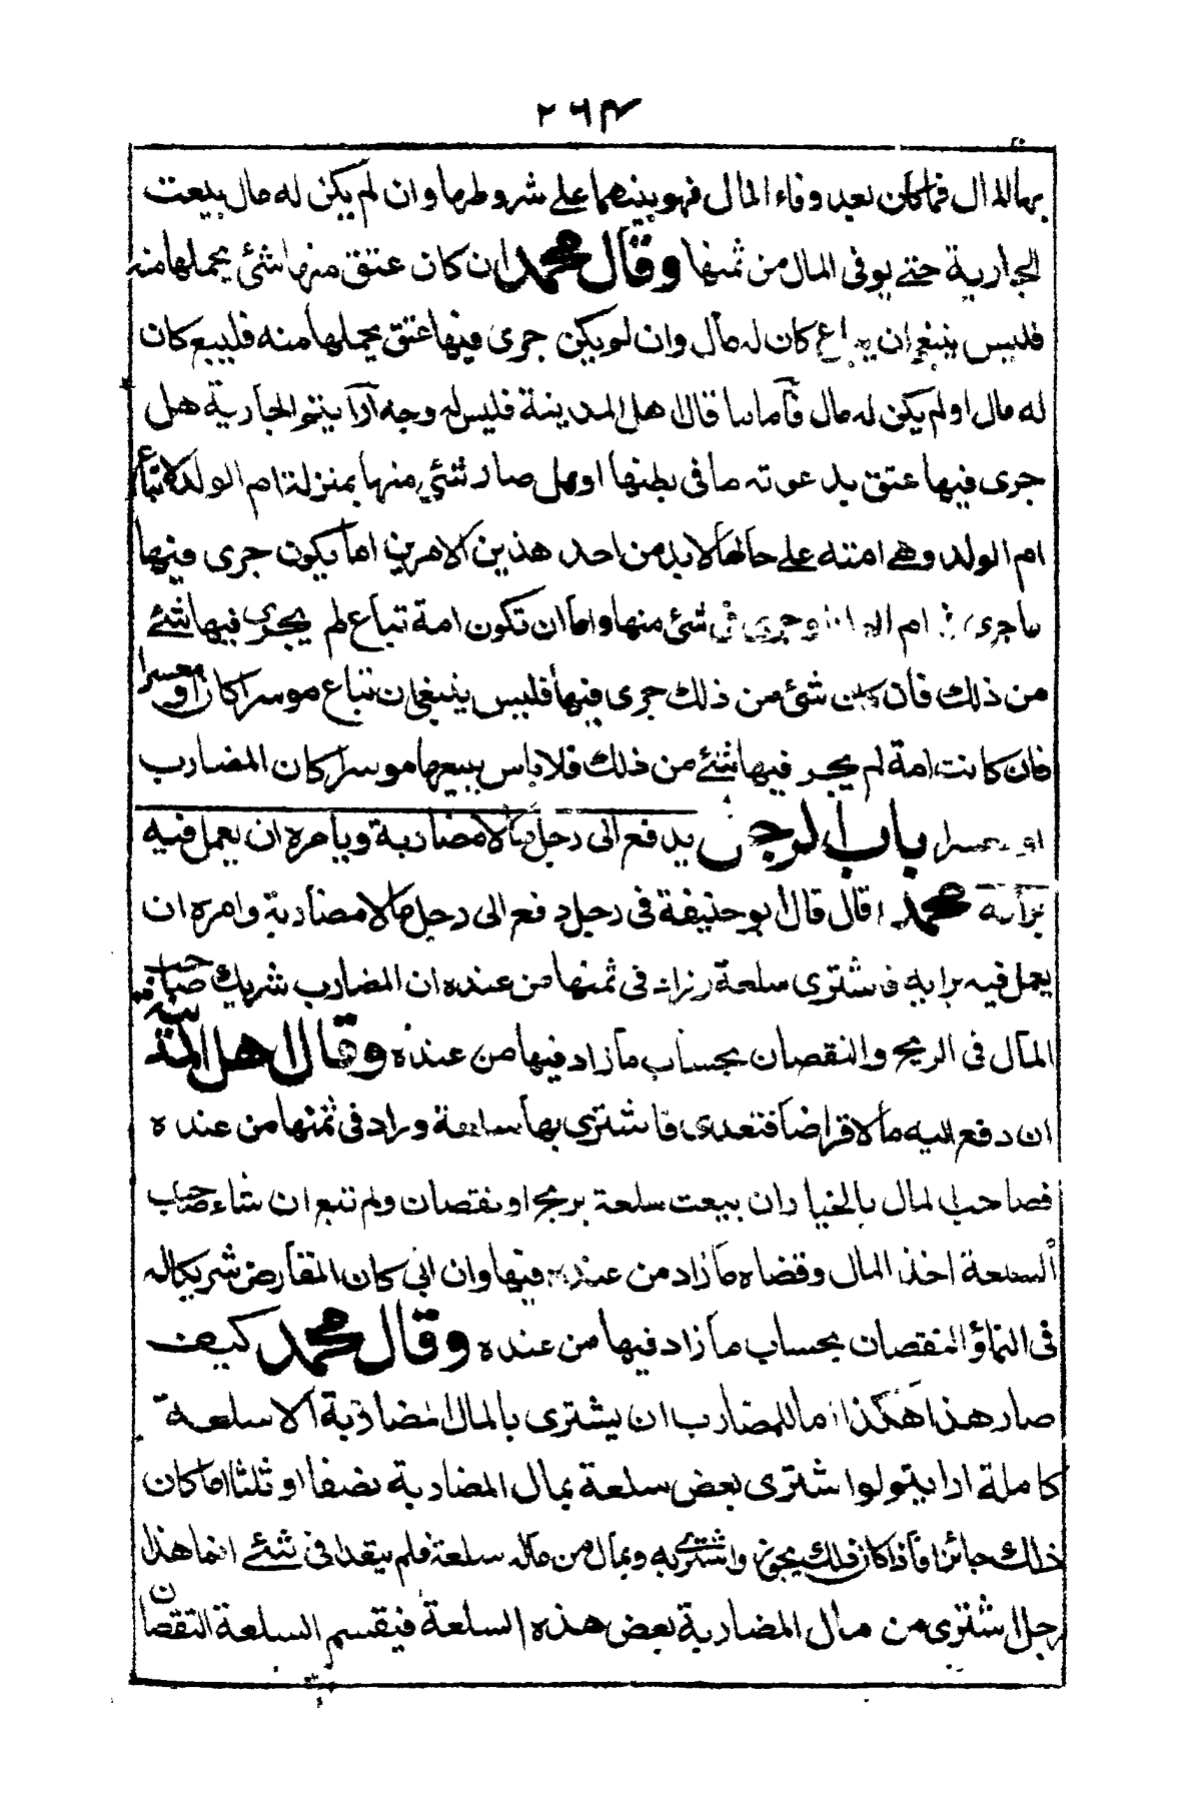 ٢٦٤
بها المال فما كان بعد وفاء المال فهو بينهما على شروطها وان لم يكن له مال بيعت
الجارية حتى يوفى المال من ثمنها وقال محمد ان كان عتق منها شئ يحملها منه
فليس ينبغي ان يباع كان له مال وان لو يكن جرى فيها عتق يحملها منه فليبع كان
له مال او لم يكن له مال فأما ما قال اهل المدينة فليس له وجه أرأيتم الجارية هل
جرى فيها عتق بدعوته ما في بطنها او هل صار شئ منها بمنزلة ام الولد لا تباع
ام الولد وهى امته على حالها لا بد من احد هذين الامرين اما يكون جرى فيها
ما جرى في ام الولد وجرى في شئ منها واما ان تكون امة تباع لم يجرى فيها شئ
من ذلك فان كان شئ من ذلك جرى فيها فليس ينبغي ان تباع موسرا كان او معسرا
فان كانت امة لم يجر فيها شئ من ذلك فلا باس ببيعها موسرا كان المضارب
او معسرا باب الرجل يدفع الى رجل مالا مضاربة ويأمره ان يعمل فيه
برأيه محمد قال قال ابو حنيفة في رجل دفع الى رجل مالا مضاربة وامره ان
يعمل فيه برايه فاشترى سلعة وزاد في ثمنها من عنده ان المضارب شريك صاحب
المال في الربح والنقصان بحساب ما زاد فيها من عنده وقال اهل المدينة
ان دفع اليه مالا قراضا فتعدى فاشترى بها سلعة وزاد في ثمنها من عنده
فصاحب المال بالخيار ان بيعت سلعة بربح او نقصان ولم تبع ان شاء صاحب
السلعة اخذ المال وقضاه ما زاد من عنده فيها وان ابى كان المقارض شريكا له
في النماؤ النقصان بحساب ما زاد فيها من عنده وقال محمد كيف
صار هذا هكذا اما للمضارب ان يشترى بالمال المضاربة الا سلعة
كاملة ارايتم لو اشترى بعض سلعة بمال المضاربة نصفا او ثلثا اما كان
ذلك جائزا فأذا كان ذلك يجوز واشترى به وبمال من ماله سلعة فلم يتعد في شئ انما هذا
رجل اشترى من مال المضاربة بعض هذه السلعة فيقسم السلعة النقصان